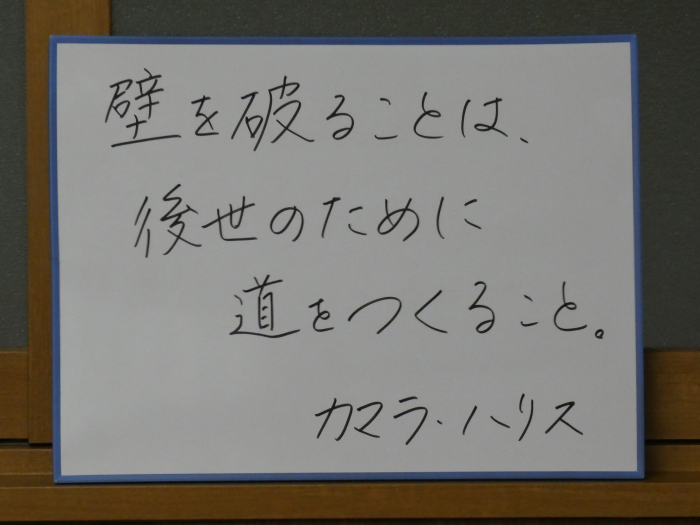 壁を破ることは、
後世のために
道をつくること。
カマラ・ハリス